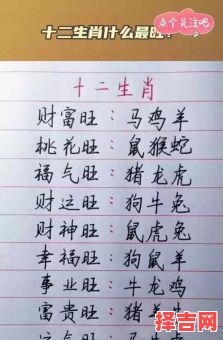 点个关注吧
十二生肖什么最旺?
十二生肖
财富旺:马鸡羊
桃花旺:鼠猴蛇
福气旺:猪龙虎
财运旺:狗牛兔
财神旺:鼠虎兔
幸福旺:狗鼠羊
事业旺:牛龙鸡
富贵旺:猪羊
择吉网
zeji.com